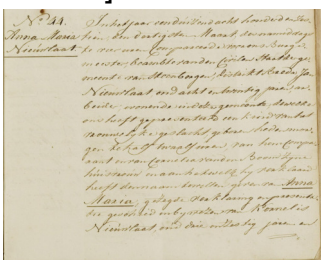 No. 44.
Anna Maria
Nieuwlaat.
In het jaar een duizend acht honderd en
tien, den dertigste Maart, des namiddags
te vier uren Compareerde voor ons Burge
meester, Beambte van den Civilen Staat der ge
meente van Steenbergen, district Breda, Jan
Nieuwlaat oud acht en twintig jaren, ar
beider, wonende in deze gemeente, dewelke
ons heeft gepresenteerd een kind van het
vrouwelijke geslacht geboren heden mor
gen te half twaalf uren, van hem Compa
rant en van Cornelia van den Boom zijne
huisvrouw en aan hetwelk hij verklaard
heeft de voornamen te geven van Anna
Maria; gezegde verklaring en presenta
tie geschied in bijwezen van Kornelis
Nieuwlaat, oud drie en zestig jaren en